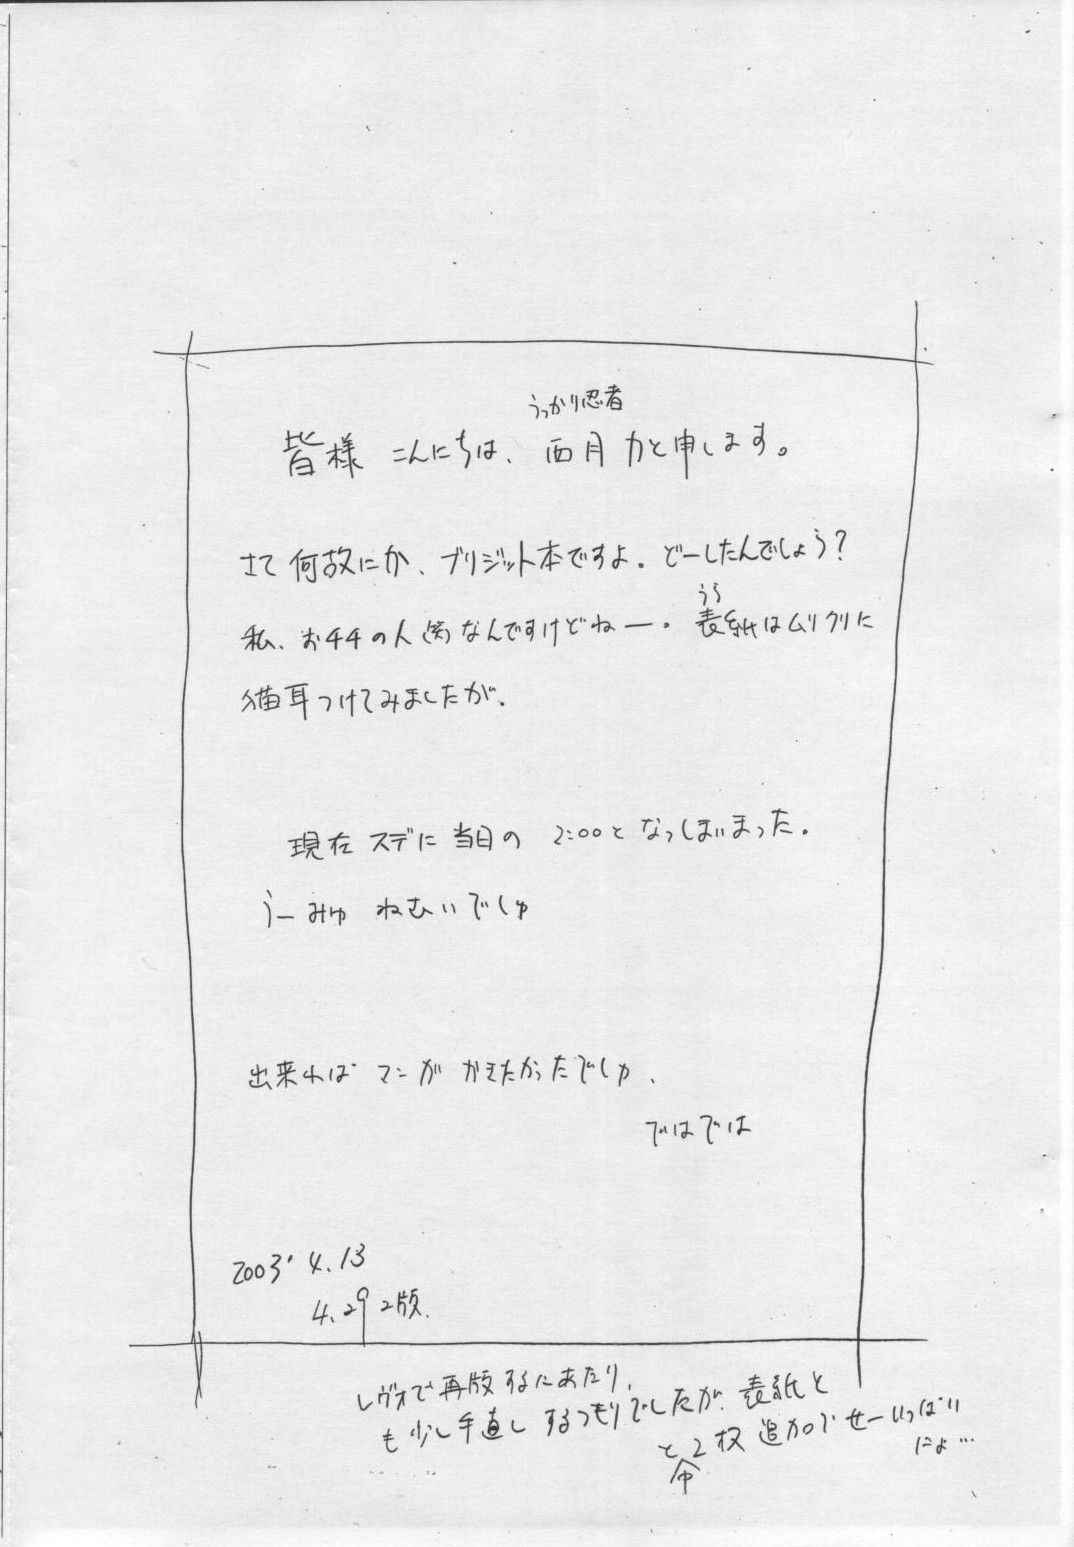 うっかり忍者
皆様 こんにちは、西月 力と申します。
さて 何故にか、ブリジット本ですよ。どーしたんでしょう？
うら
私、お千チの人なんですけどねー。表紙はムリクリに
猫耳つけてみましたが、
現在 スデに 当日の 2:00と なってしまいまった。
うーみゅ ねむいでしゅ
出来れば マンガ かきたかったでしゅ、
ではでは
2003' 4.13
4.29 2版.
レヴォで再版するにあたり、
も少し手直し するつもりでしたが、表紙と
と2枚 追加で せーいっぱい
中
にょ…